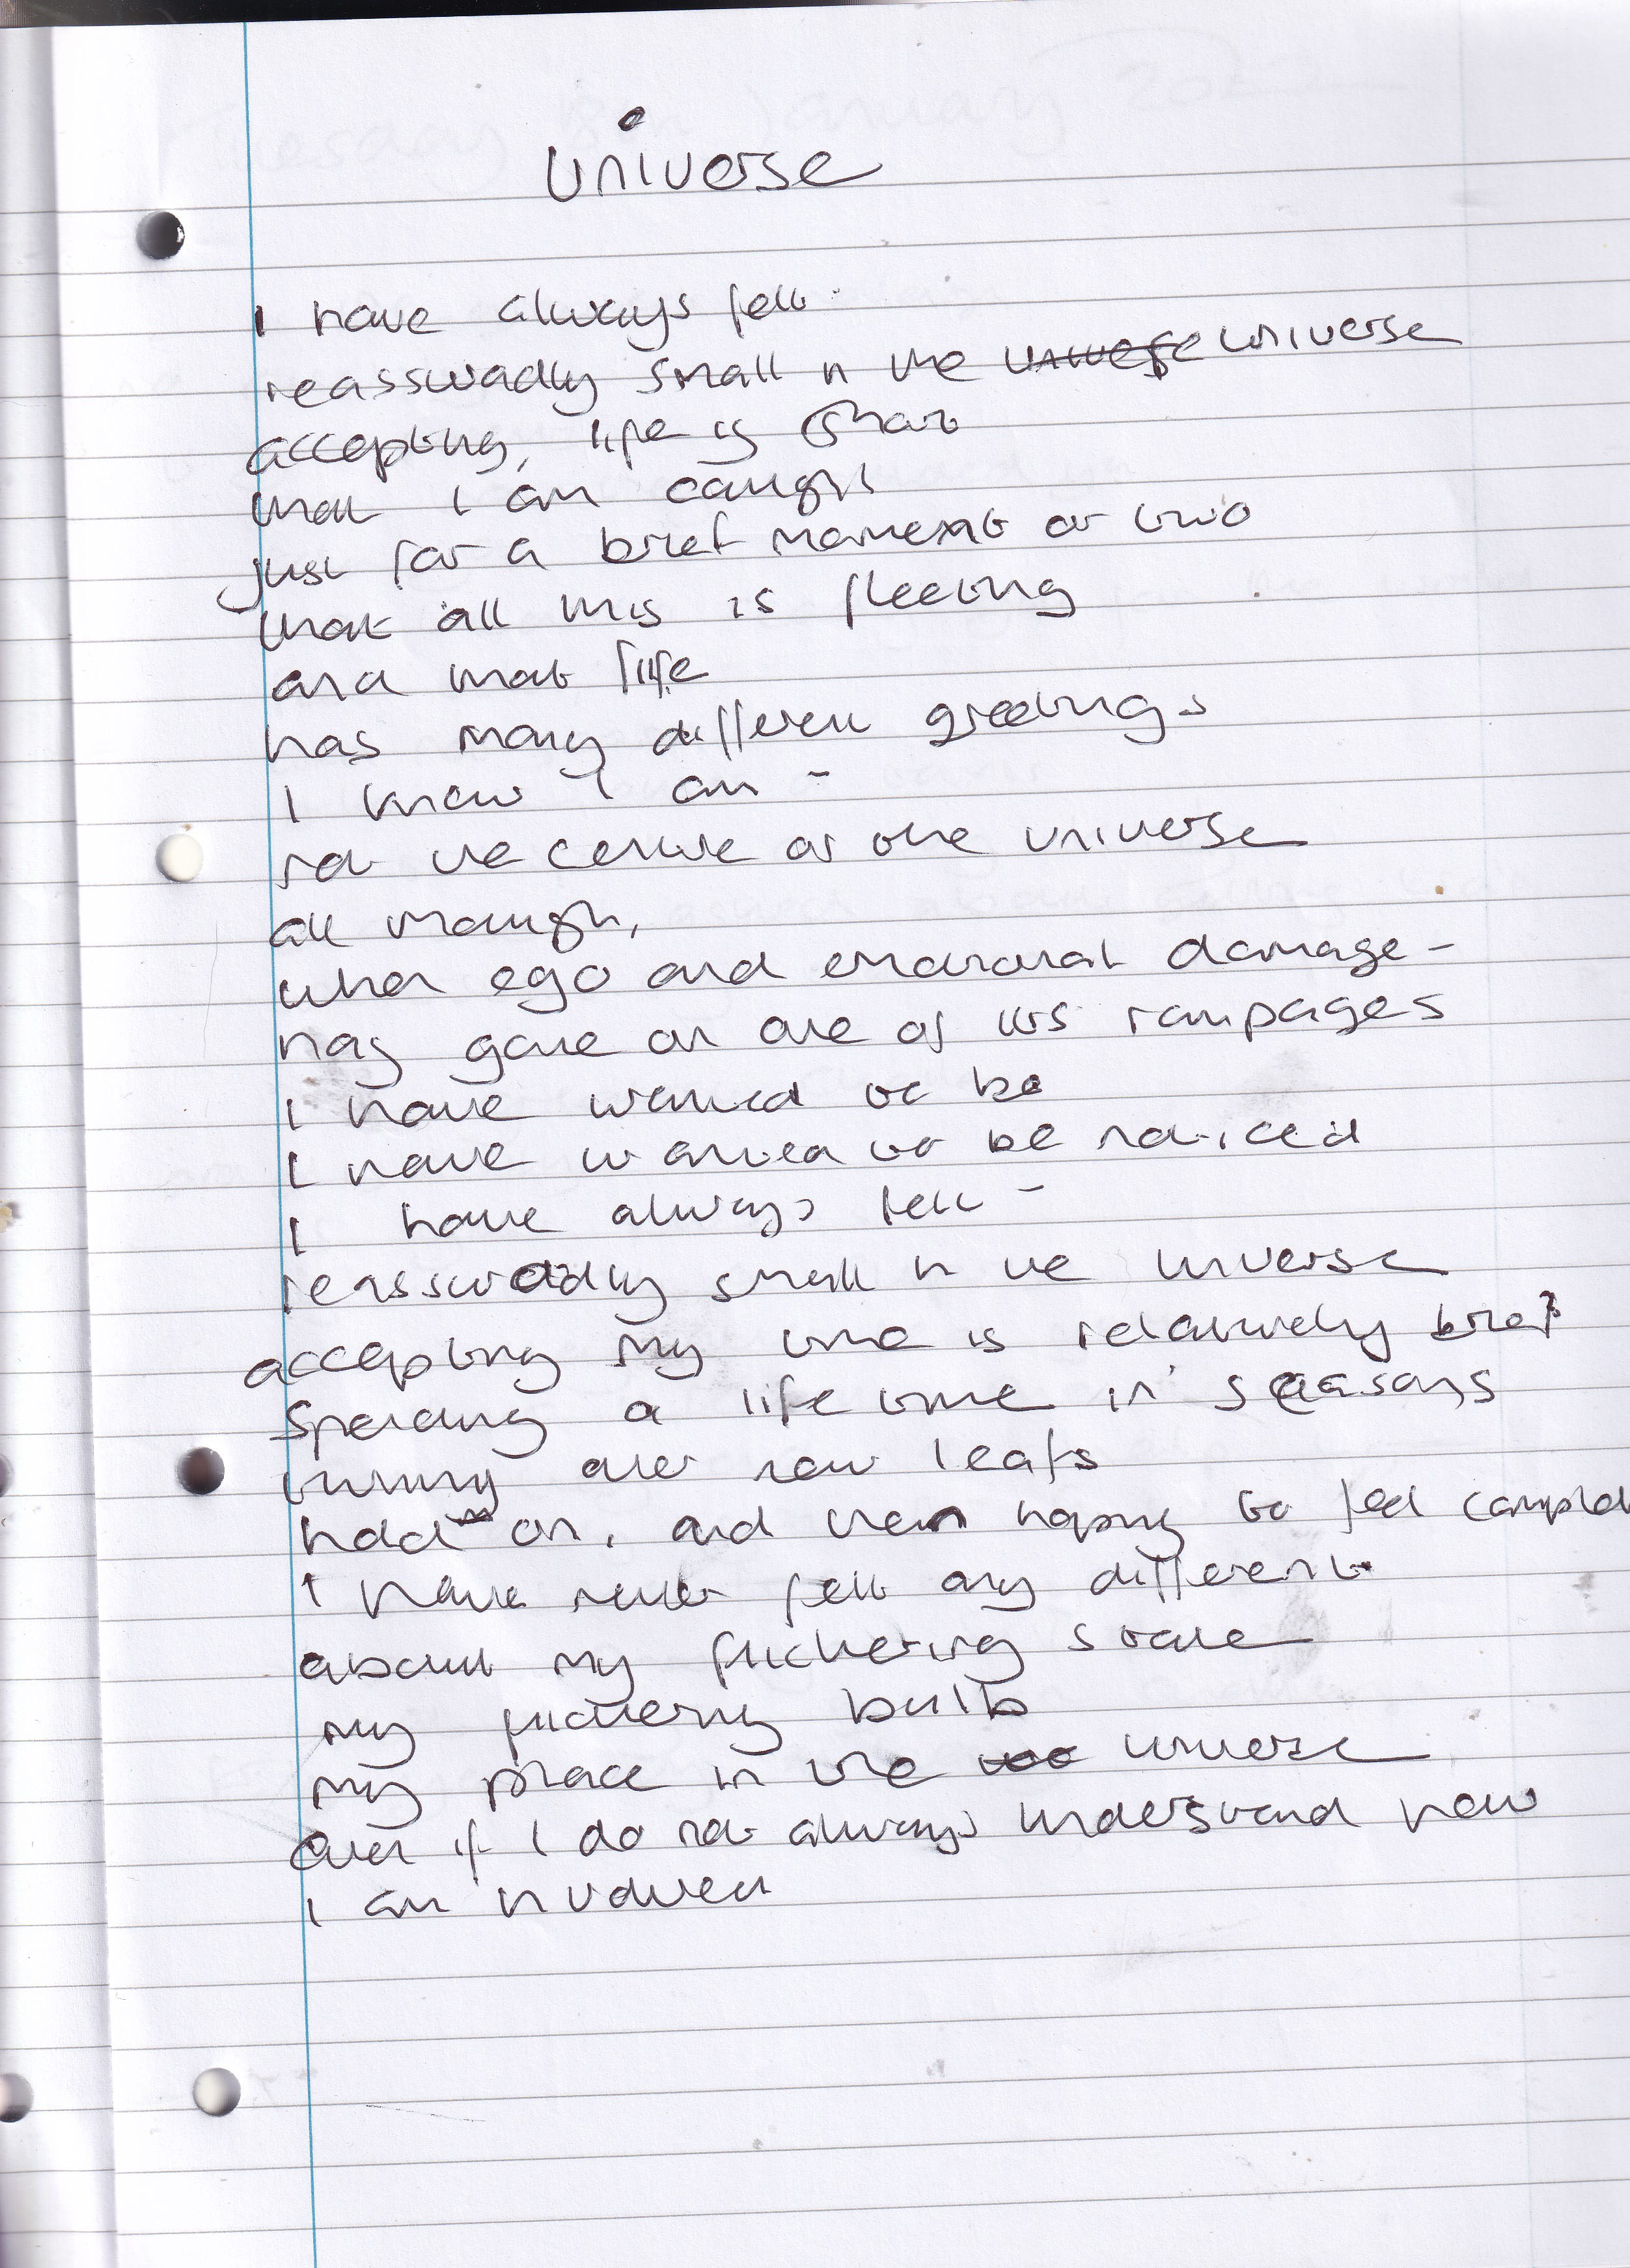 universe
I have always felt
reassuradly small in the universe universe
accepting, life is short
that I am caught
just for a brief moment or two
that all this is fleeting
and that life
has many different greetings
I know I am -
not the centre of the universe
all though,
when ego and emotional damage -
has gone on one of its rampages
I have wanted to be
I have wanted to be noticed
I have always felt -
reassuradly small in the universe
accepting my time is relatively brief
spending a life time in seasons
turning over new leafs
hold on, and then hoping to feel complet
I have never felt any different
about my flickering state
my flickering bulb
my place in the universe
even if I do not always understand how
I am involved